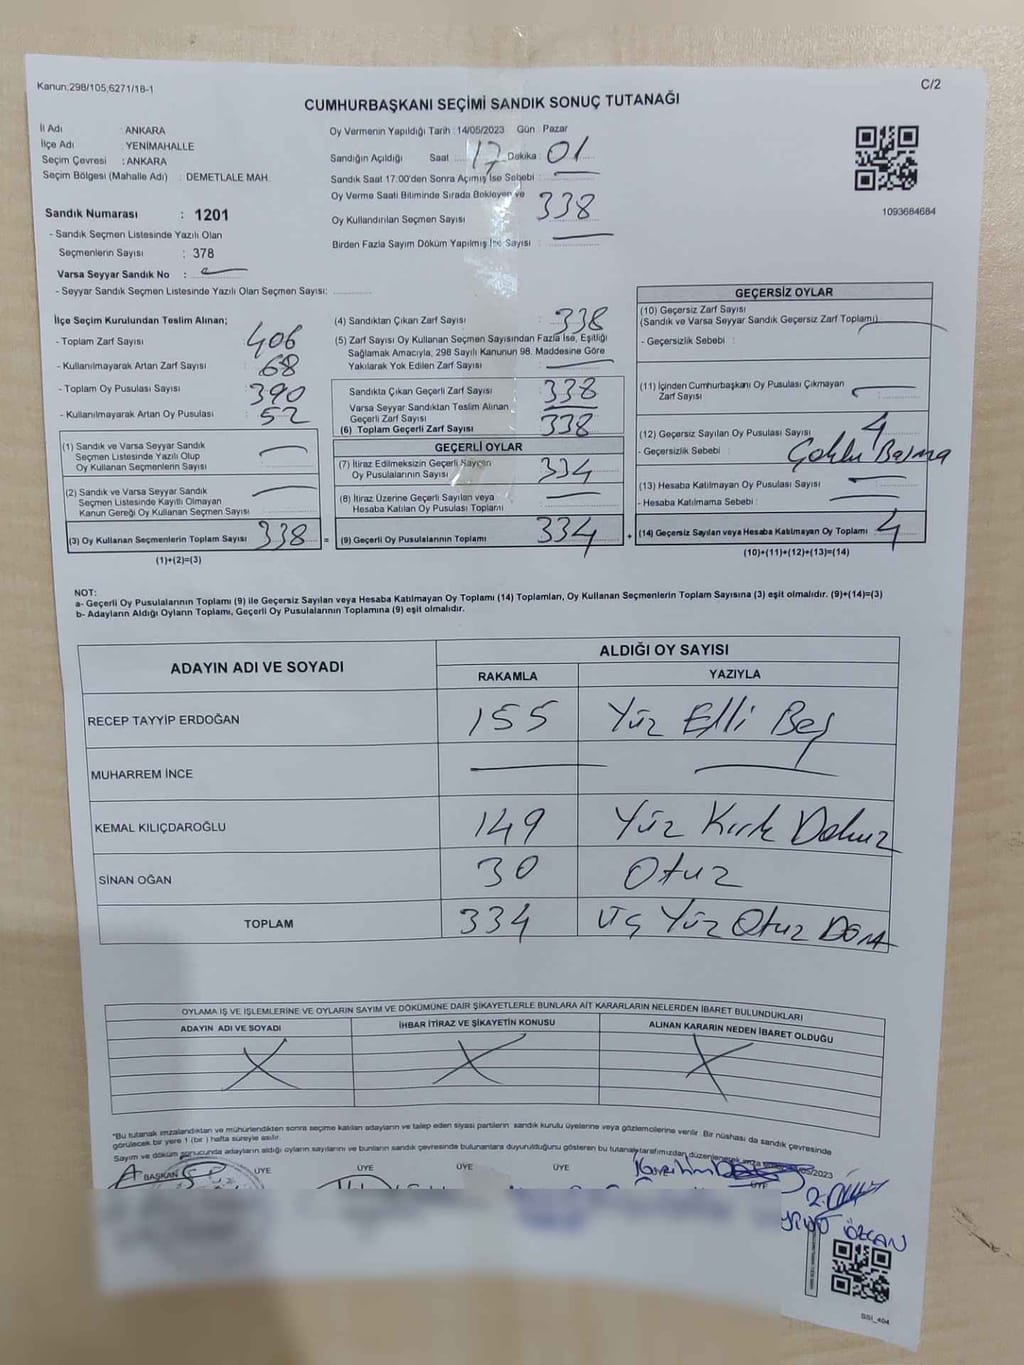 Kanun.298/105;6271/18-1
C/2
CUMHURBAŞKANI SEÇİMİ SANDIK SONUÇ TUTANAĞI
İl Adı : ANKARA
İlçe Adı : YENİMAHALLE
Seçim Çevresi : ANKARA
Seçim Bölgesi (Mahalle Adı) : DEMETLALE MAH.
Sandık Numarası : 1201
- Sandık Seçmen Listesinde Yazılı Olan
Seçmenlerin Sayısı : 378
Varsa Seyyar Sandık No :
- Seyyar Sandık Seçmen Listesinde Yazılı Olan Seçmen Sayısı:
Oy Vermenin Yapıldığı Tarih : 14/05/2023 Gün : Pazar
Sandığın Açıldığı Saat : 17 Dakika : 01
Sandık Saat 17:00'den Sonra Açımış İse Sebebi :
Oy Verme Saati Bitiminde Sırada Bekleyen ve
Oy Kullandırılan Seçmen Sayısı : 338
Birden Fazla Sayım Döküm Yapılmış İse Sayısı :
1093684684
İlçe Seçim Kurulundan Teslim Alınan;
- Toplam Zarf Sayısı : 406
- Kullanılmayarak Artan Zarf Sayısı : 68
- Toplam Oy Pusulası Sayısı : 390
- Kullanılmayarak Artan Oy Pusulası : 52
(1) Sandık ve Varsa Seyyar Sandık
Seçmen Listesinde Yazılı Olup
Oy Kullanan Seçmenlerin Sayısı
(2) Sandık ve Varsa Seyyar Sandık
Seçmen Listesinde Kayıtlı Olmayan
Kanun Gereği Oy Kullanan Seçmen Sayısı
(3) Oy Kullanan Seçmenlerin Toplam Sayısı 338
(1)+(2)=(3)
(4) Sandıktan Çıkan Zarf Sayısı : 338
(5) Zarf Sayısı Oy Kullanan Seçmen Sayısından Fazla İse, Eşitliği
Sağlamak Amacıyla, 298 Sayılı Kanunun 98. Maddesine Göre
Yakılarak Yok Edilen Zarf Sayısı :
Sandıkta Çıkan Geçerli Zarf Sayısı : 338
Varsa Seyyar Sandıktan Teslim Alınan
Geçerli Zarf Sayısı
(6) Toplam Geçerli Zarf Sayısı : 338
GEÇERLİ OYLAR
(7) İtiraz Edilmeksizin Geçerli Sayılan
Oy Pusulalarının Sayısı : 334
(8) İtiraz Üzerine Geçerli Sayılan veya
Hesaba Katılan Oy Pusulası Toplamı
= (9) Geçerli Oy Pusulalarının Toplamı 334
GEÇERSİZ OYLAR
(10) Geçersiz Zarf Sayısı
(Sandık ve Varsa Seyyar Sandık Geçersiz Zarf Toplamı)
- Geçersizlik Sebebi :
(11) İçinden Cumhurbaşkanı Oy Pusulası Çıkmayan
Zarf Sayısı
(12) Geçersiz Sayılan Oy Pusulası Sayısı : 4
- Geçersizlik Sebebi : Çoklu Basma
(13) Hesaba Katılmayan Oy Pusulası Sayısı :
- Hesaba Katılmama Sebebi :
+ (14) Geçersiz Sayılan veya Hesaba Katılmayan Oy Toplamı 4
(10)+(11)+(12)+(13)=(14)
NOT:
a- Geçerli Oy Pusulalarının Toplamı (9) ile Geçersiz Sayılan veya Hesaba Katılmayan Oy Toplamı (14) Toplamları, Oy Kullanan Seçmenlerin Toplam Sayısına (3) eşit olmalıdır. (9)+(14)=(3)
b- Adayların Aldığı Oyların Toplamı, Geçerli Oy Pusulalarının Toplamına (9) eşit olmalıdır.
ADAYIN ADI VE SOYADI
ALDIĞI OY SAYISI
RAKAMLA YAZIYLA
RECEP TAYYİP ERDOĞAN 155 Yüz Elli Beş
MUHARREM İNCE
KEMAL KILIÇDAROĞLU 149 Yüz Kırk Dokuz
SİNAN OĞAN 30 Otuz
TOPLAM 334 Üç Yüz Otuz Dört
OYLAMA İŞ VE İŞLEMLERİNE VE OYLARIN SAYIM VE DÖKÜMÜNE DAİR ŞİKAYETLERLE BUNLARA AİT KARARLARIN NELERDEN İBARET BULUNDUKLARI
ADAYIN ADI VE SOYADI İHBAR İTİRAZ VE ŞİKAYETİN KONUSU ALINAN KARARIN NEDEN İBARET OLDUĞU
"Bu tutanak imzalandıktan ve mühürlendikten sonra seçime katılan adayların ve talep eden siyasi partilerin sandık kurulu üyelerine veya gözlemcilerine verilir. Bir nüshası da sandık çevresinde
görülecek bir yere 1 (bir) hafta süreyle asılır.
Sayım ve döküm sonucunda adayların aldığı oyların sayılarını ve bunların sandık çevresinde bulunanlara duyurulduğunu gösteren bu tutanak tarafımızdan düzenlenerek imza /05/2023
BAŞKAN ÜYE ÜYE ÜYE ÜYE ÜYE
ÖZCAN
SSI_404